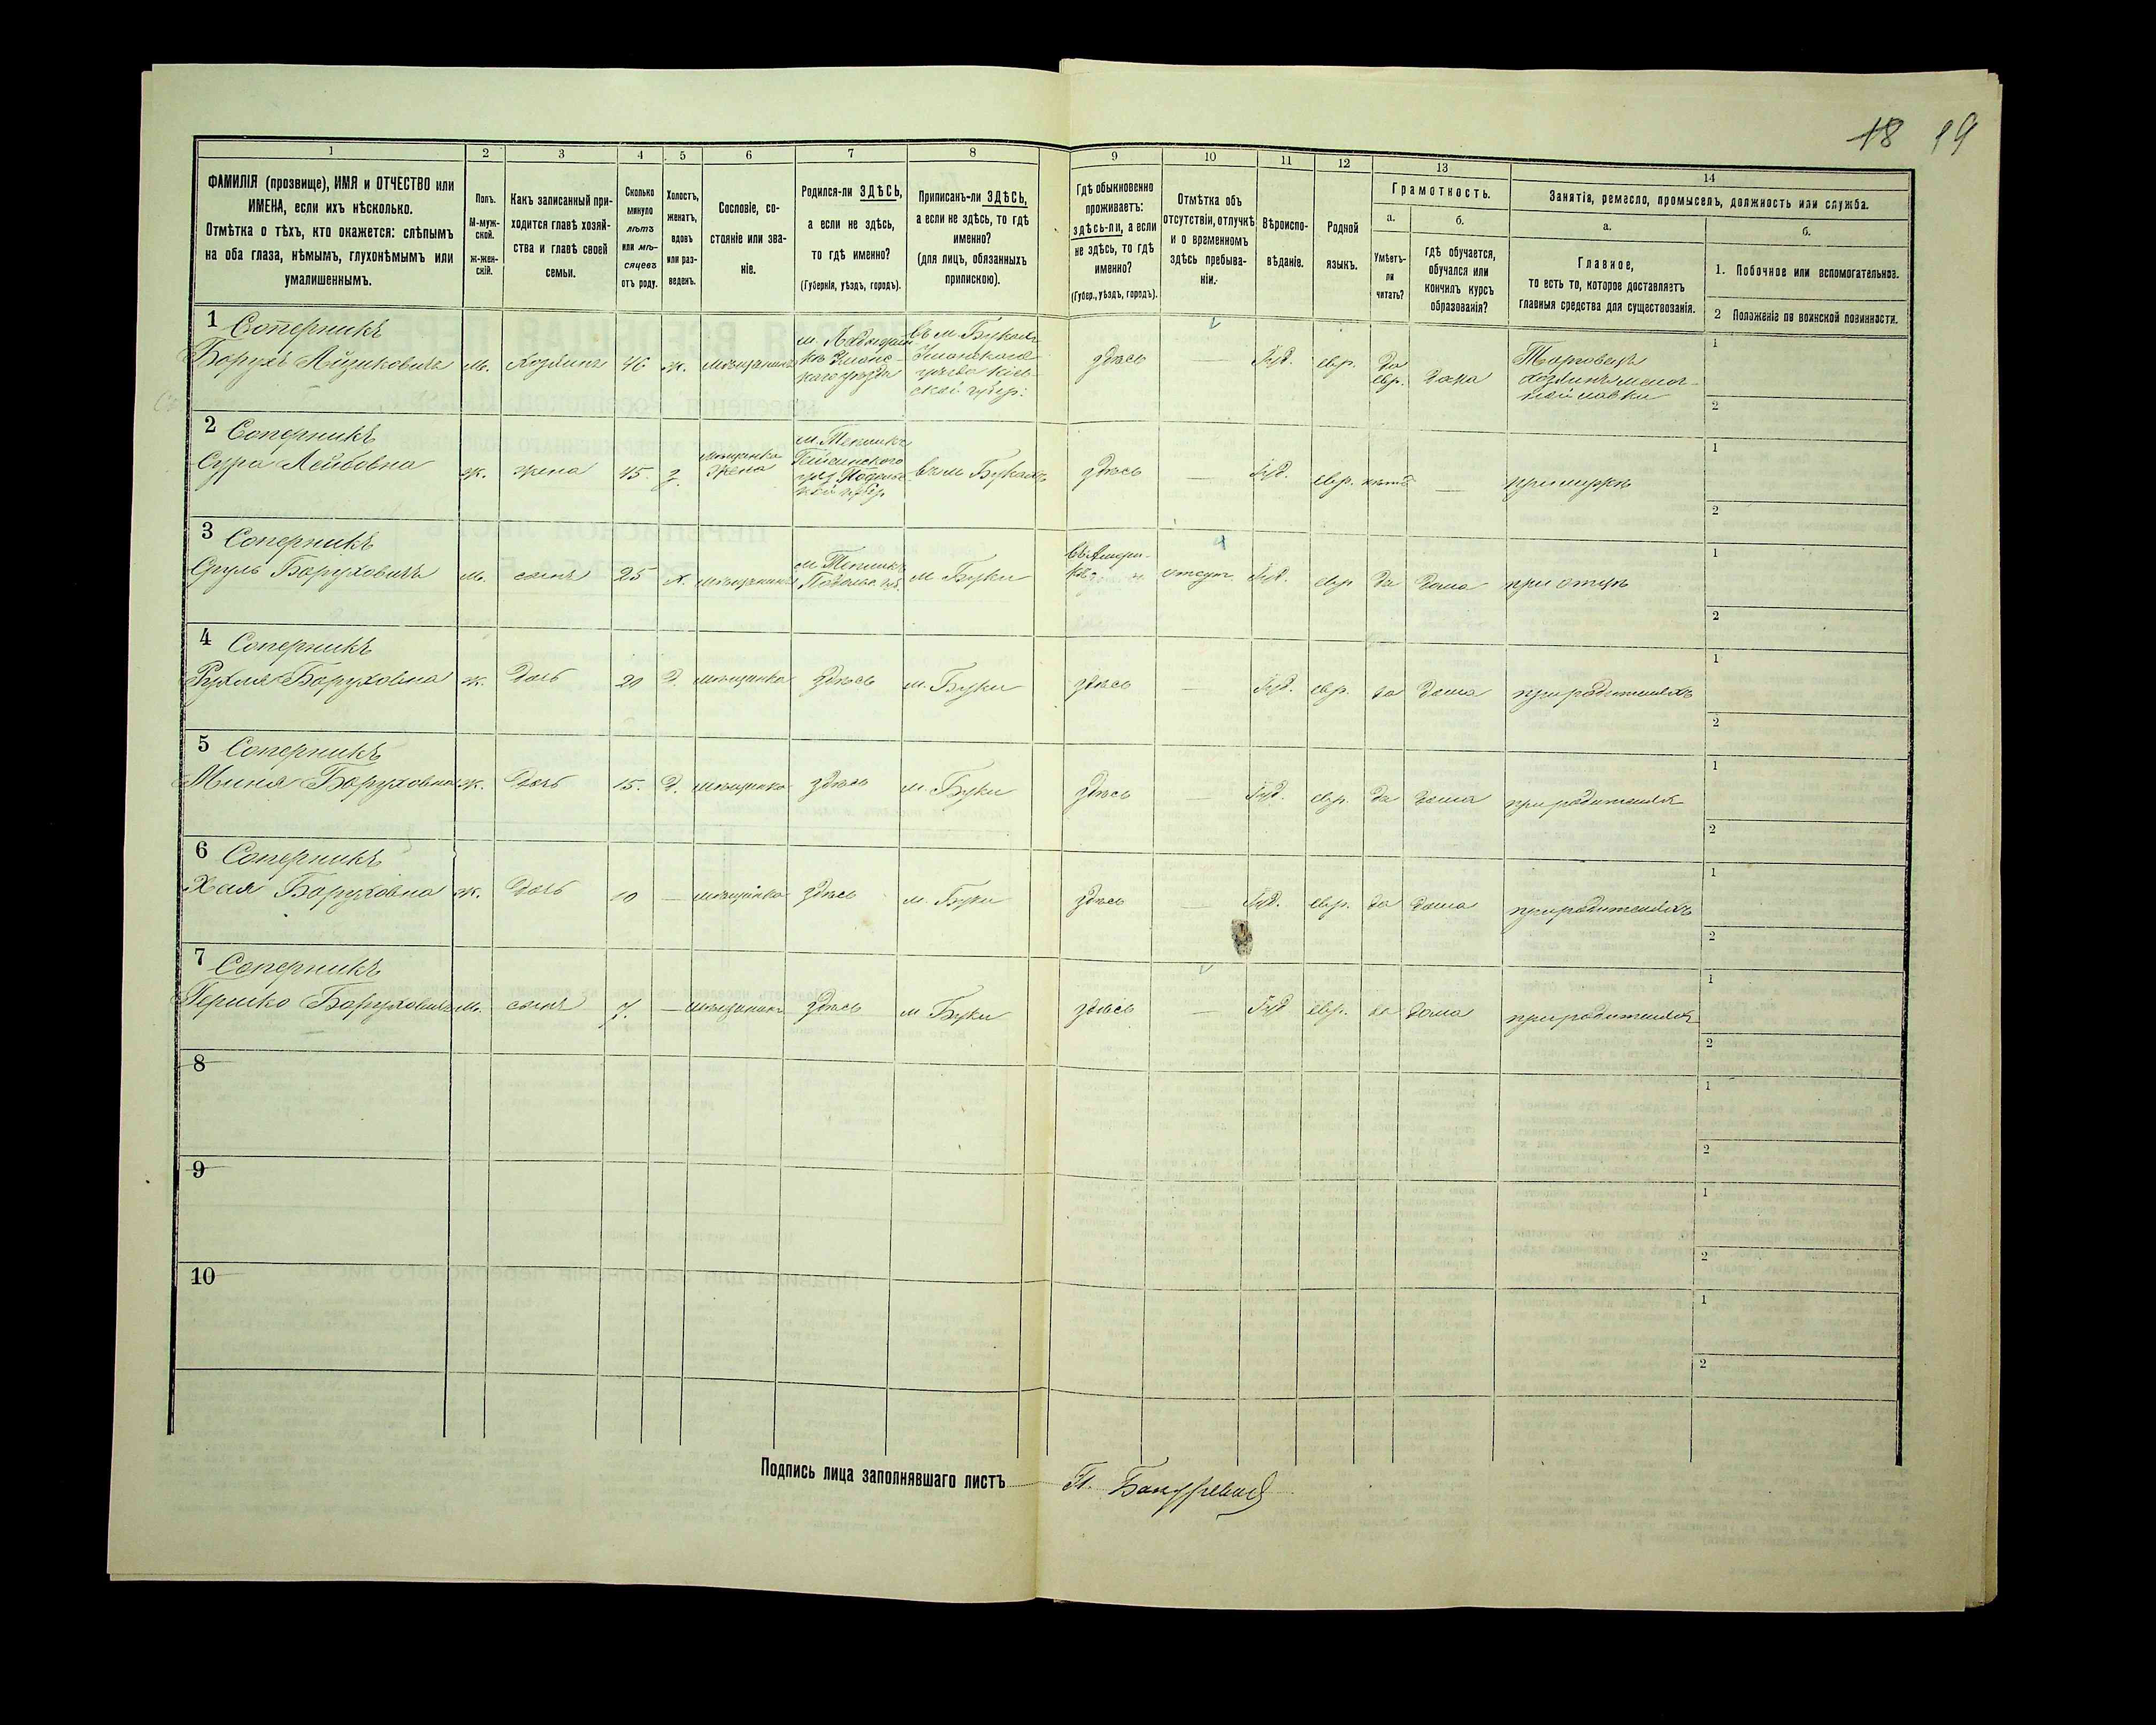 18 19
1
2
3
4
5
6
7
8
9
10
11
12
13
14
ФАМИЛІЯ (прозвище), ИМЯ и ОТЧЕСТВО или
ИМЕНА, если ихъ нѣсколько.
Отмѣтка о тѣхъ, кто окажется: слѣпымъ
на оба глаза, нѣмымъ, глухонѣмымъ или
умалишеннымъ.
Полъ.
М-муж-
ской.
ж-жен-
скій.
Какъ записанный при-
ходится главѣ хозяй-
ства и главѣ своей
семьи.
Сколько
минуло
лѣтъ
или мѣ-
сяцевъ
отъ роду.
Холостъ,
женатъ,
вдовъ
или раз-
веденъ.
Сословіе, со-
стояніе или зва-
ніе.
Родился-ли ЗДѢСЬ,
а если не здѣсь,
то гдѣ именно?
(Губернія, уѣздъ, городъ).
Приписанъ-ли ЗДѢСЬ,
а если не здѣсь, то гдѣ
именно?
(для лицъ, обязанныхъ
припискою).
Гдѣ обыкновенно
проживаетъ:
здѣсь-ли, а если
не здѣсь, то гдѣ
именно?
(Губер., уѣздъ, городъ).
Отмѣтка объ
отсутствіи, отлучкѣ
и о временномъ
здѣсь пребыва-
ніи.
Вѣроиспо-
вѣданіе.
Родной
языкъ.
Грамотность.
а.
б.
Умѣетъ-
ли
читать?
Гдѣ обучается,
обучался или
кончилъ курсъ
образованія?
Занятія, ремесло, промыселъ, должность или служба.
а.
б.
Главное,
то есть то, которое доставляетъ
главныя средства для существованія.
1. Побочное или вспомогательное.
2 Положеніе по воинской повинности.
1 Соперникъ
Борухъ Айзиковичъ м. хозяинъ 46 ж. мѣщанинъ
въ м. Букахъ
Уманскаго
уѣзда Кіев-
ской губер:
здѣсь — Іуд. евр. да
евр. дома
Торговецъ
хозяинъ мелоч-
ной лавки
1
2
2 Соперникъ
Сура Лейбовна ж. жена 45. з. мѣщанка
жена
м. Тепликъ
Гайсинского
уѣз. Подоль-
ской губер.
въ м. Букахъ здѣсь — Іуд. евр. нѣтъ — при мужѣ
1
2
3 Соперникъ
Сруль Боруховичъ м. сынъ 25 х. мѣщанинъ
м Тепликъ
Подольс. губ.
м Буки
въ Амери-
кѣ
отсут. Іуд. евр да дома при отцѣ
1
2
4 Соперникъ
Рухля Боруховна ж. дочь 20 д. мѣщанка здѣсь м. Буки здѣсь — Іуд. евр. да дома при родителяхъ
1
2
5 Соперникъ
Миня Боруховна ж. дочь 15. д. мѣщанка здѣсь м. Буки здѣсь — Іуд. евр. да дома при родителях
1
2
6 Соперникъ
Хая Боруховна ж. дочь 10 — мѣщанка здѣсь м. Буки здѣсь — Іуд. евр. да дома при родителяхъ
1
2
7 Соперникъ
Гершко Боруховичъ м. сынъ 7. — мѣщанинъ здѣсь м Буки здѣсь — Іуд евр. да дома при родителях
1
2
8
1
2
9
1
2
10
1
2
Подпись лица заполнявшаго листъ